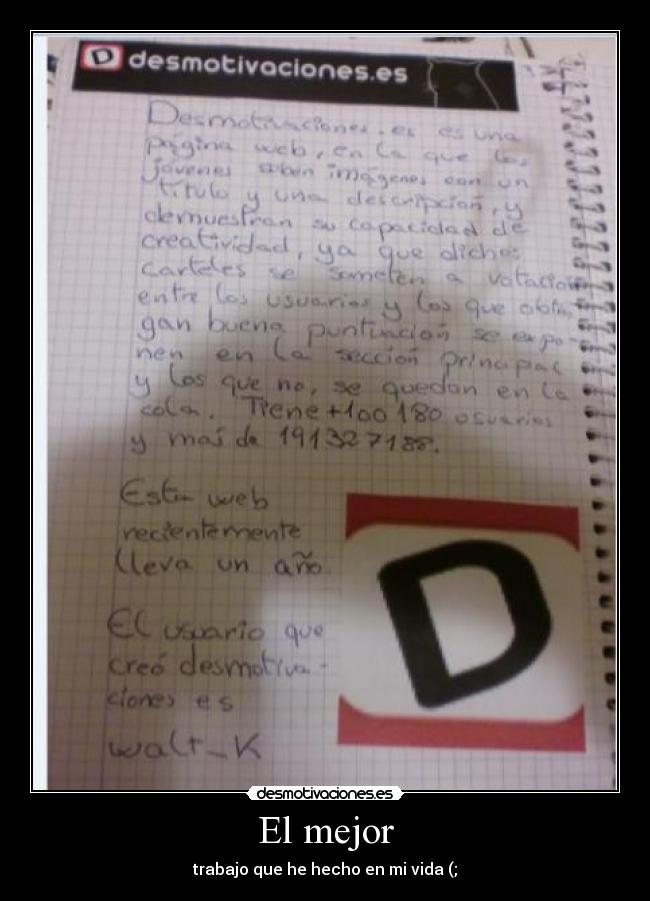 D desmotivaciones.es
Desmotivaciones.es es una
página web, en la que los
jóvenes suben imágenes con un
título y una descripción, y
demuestran su capacidad de
creatividad, ya que dichos
carteles se someten a votación
entre los usuarios y los que obten
gan buena puntuación se expo-
nen en la sección principal
y los que no, se quedan en la
cola. Tiene +100180 usuarios
y mas de 191327188.
Esta web
recientemente
lleva un año.
D
El usuario que
creó desmotiva-
ciones es
walt_K
desmotivaciones.es
El mejor
trabajo que he hecho en mi vida (;